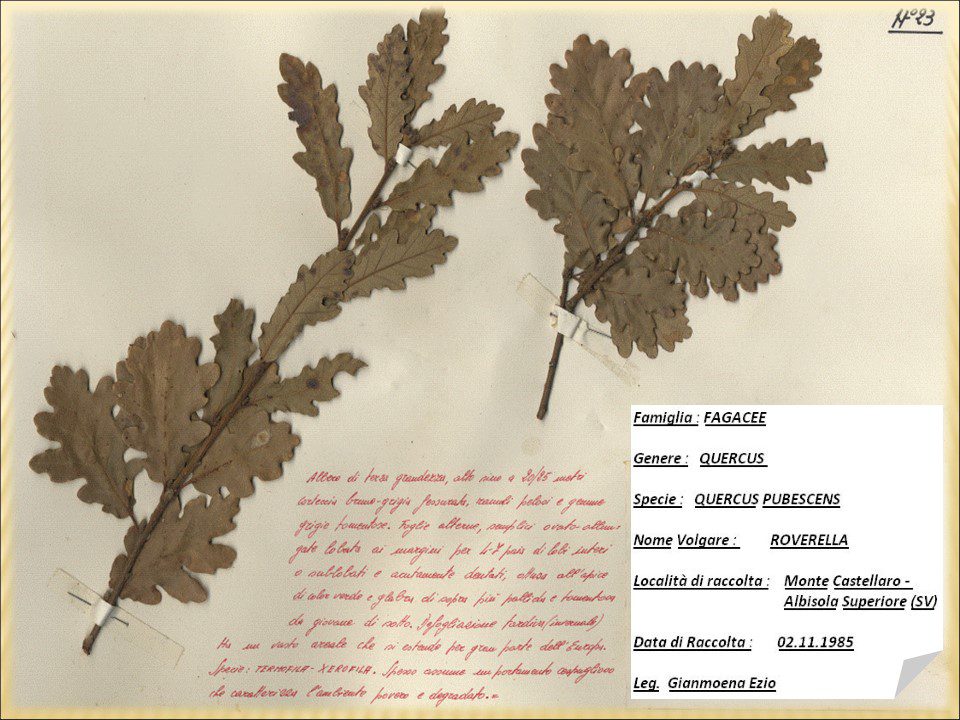 N°23
Albero di terza grandezza, alto sino a 20/25 metri
corteccia bruno-grigia fessurata, ramuli pelosi e gemme
grigie tomentose. Foglie alterne, semplici ovato-allun-
gate lobate ai margini per 4-7 paia di lobi interi
o sublobati e acutamente dentati, ottusa all'apice
di color verde e glabra di sopra più pallida e tomentosa
da giovane di sotto. (sfogliazione tardiva/invernale)
Ha un vasto areale che si estende per gran parte dell'Europa.
Specie: TERMOFILA - XEROFILA. Spesso assume un portamento cespuglioso
che caratterizza l'ambiente povero e degradato.=
Famiglia : FAGACEE
Genere : QUERCUS
Specie : QUERCUS PUBESCENS
Nome Volgare : ROVERELLA
Località di raccolta : Monte Castellaro -
Albisola Superiore (SV)
Data di Raccolta : 02.11.1985
Leg. Gianmoena Ezio